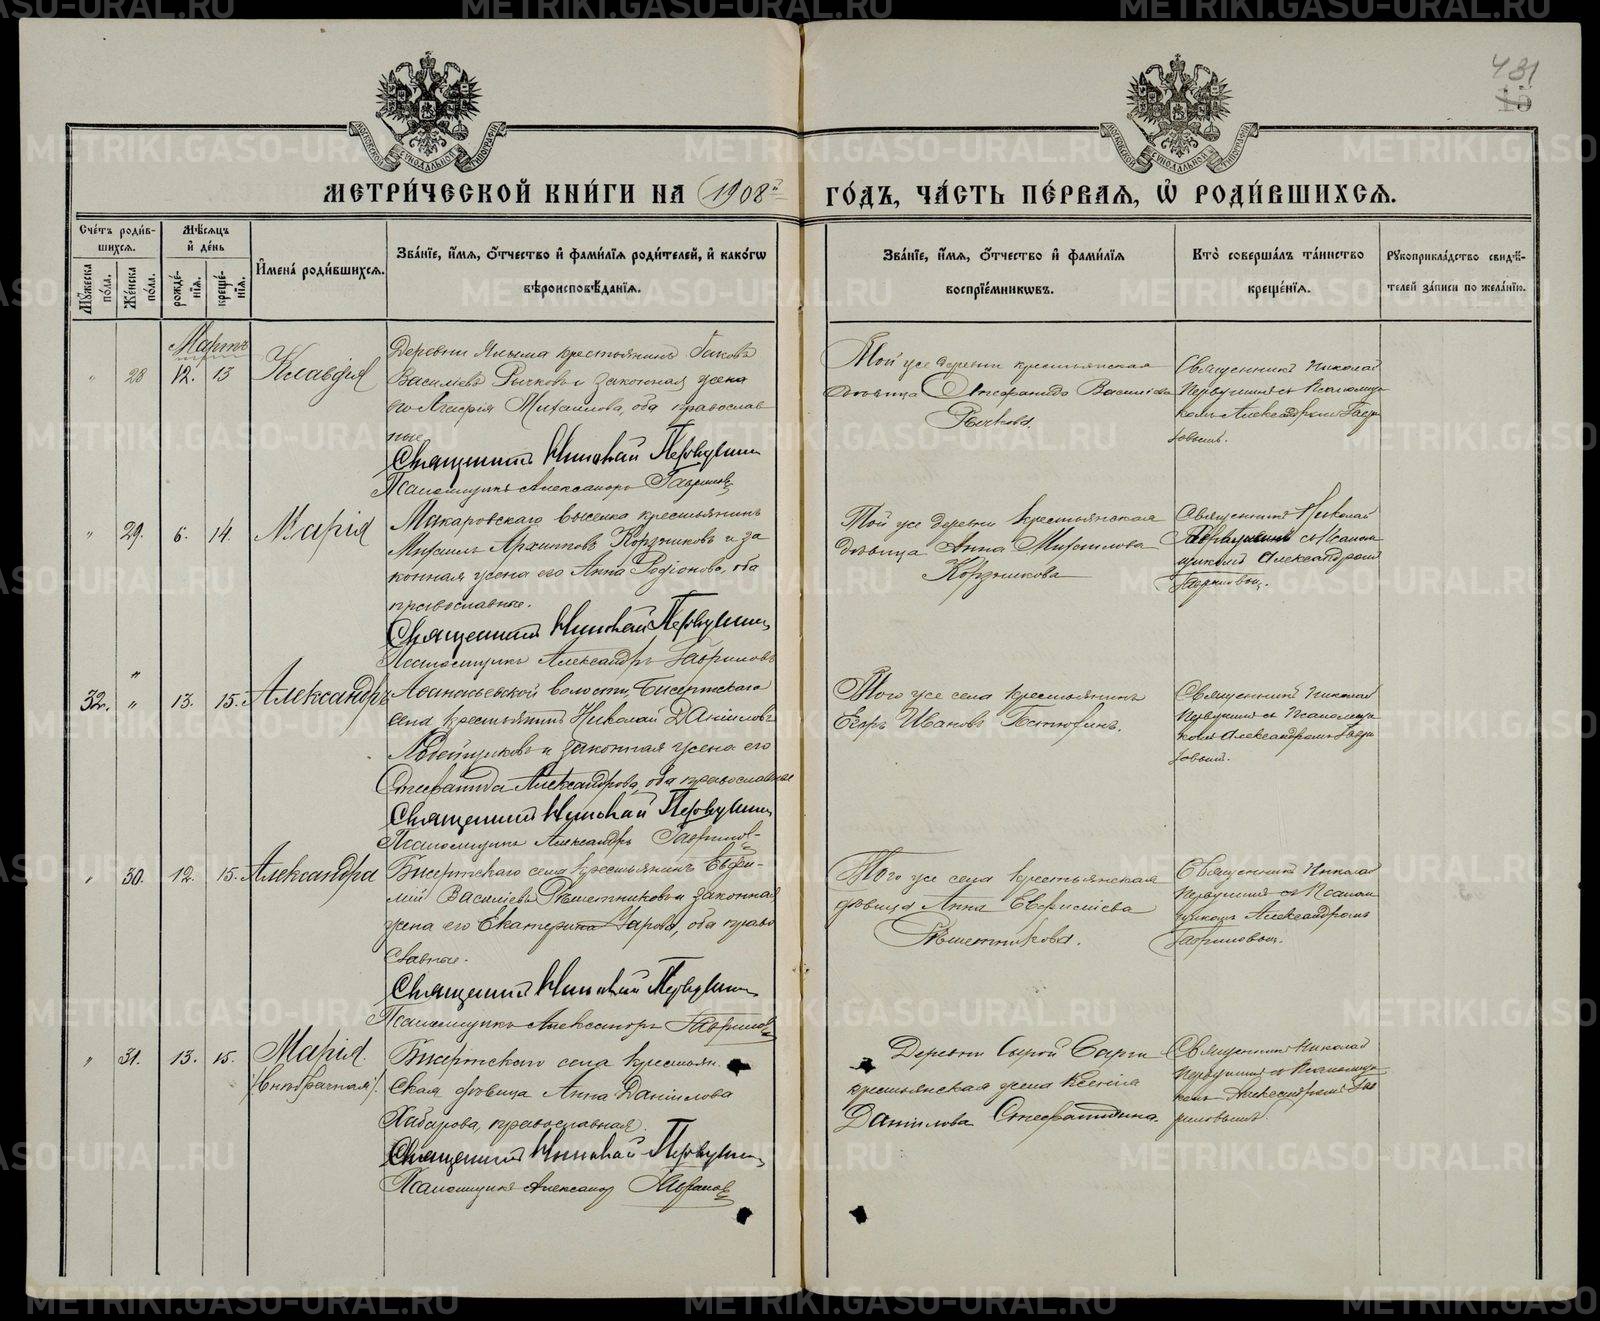 431
15
МЕТРИ́ЧЕСКОЙ КНИ́ГИ НА 1908й ГО́ДЪ, ЧА́СТЬ ПЕ́РВАЯ, Ѡ҆ РОДИ́ВШИХСѦ.
Сче́тъ роди́в-
шихсѧ.
Мꙋ́жеска по́ла.
Же́нска по́ла.
Мѣ́сѧцъ
и҆ де́нь
рожде́-
нїѧ.
креще́-
нїѧ.
И҆мена̀ роди́вшихсѧ.
Зва́нїе, и҆́мѧ, ѻ҆́тчество и҆ фамѝлїѧ роди́телей, и҆ како́гѡ
вѣроисповѣ́данїѧ.
Зва́нїе, и҆́мѧ, ѻ҆́тчество и҆ фамѝлїѧ
воспрїе́мникѡвъ.
Кто̀ соверша́лъ та́инство
креще́нїѧ.
Рꙋкоприкла́дство свидѣ́-
телей за́писи по жела́нїю.
Мартъ
28 12. 13 Клавдія
Деревни крестьянинъ Іаковъ
Васильевъ Рычковъ и законная жена
его Михаилова, оба православ
ные.
Священникъ Николай Первушин
Псаломщикъ Александръ Гавриловъ
Той же деревни крестьянская
дѣвица Стефанида Васильева
Рычкова.
Священникъ Николай
Первушинъ съ Псаломщи
комъ Александромъ Гаври
ловымъ.
29. 6. 14. Марія
Макаровскаго выселка крестьянинъ
Михаилъ Архиповъ и за
конная жена его Анна Родіонова, оба
православные.
Священникъ Николай Первушин
Псаломщикъ Александръ Гавриловъ
Той же деревни крестьянская
дѣвица Анна Михаилова
Священникъ Николай
Первушинъ съ Псалом
щикомъ Александромъ
Гавриловым.
32. 13. 15. Александръ
Афанасьевской волости, Бисертскаго
села крестьянинъ Николай Даніиловъ
и законная жена его
Стефанида Александрова, оба православные
Священникъ Николай Первушин
Псаломщикъ Александръ Гаврилов
Того же села крестьянинъ
Егоръ Ивановъ
Священникъ Николай
Первушинъ съ Псаломщи
комъ Александромъ Гаври
ловым.
30. 12. 15. Александра
Бисертскаго села крестьянинъ Евфи-
мій Васильевъ Рѣшетниковъ и законная
жена его Екатерина оба право
славные.
Священникъ Николай Первушин
Псаломщикъ Александръ Гаврилов
Того же села крестьянская
дѣвица Анна Евфиміева
Рѣшетникова.
Священникъ Николай
Первушинъ съ Псалом
щикомъ Александромъ
Гавриловым.
31. 13. 15. Марія.
/внѣбрачная/.
Бисертскаго села крестьян.
ская дѣвица Анна Даніилова
Хабарова, православная.
Священникъ Николай Первушин
Псаломщикъ Александр Гаврилов
Деревни Сырой Сарги
крестьянская жена Ксенія
Даніилова
Священникъ Николай
Первушинъ съ Псаломщи
комъ Александромъ Гав
риловымъ.
METRIKI.GASO-URAL.RU